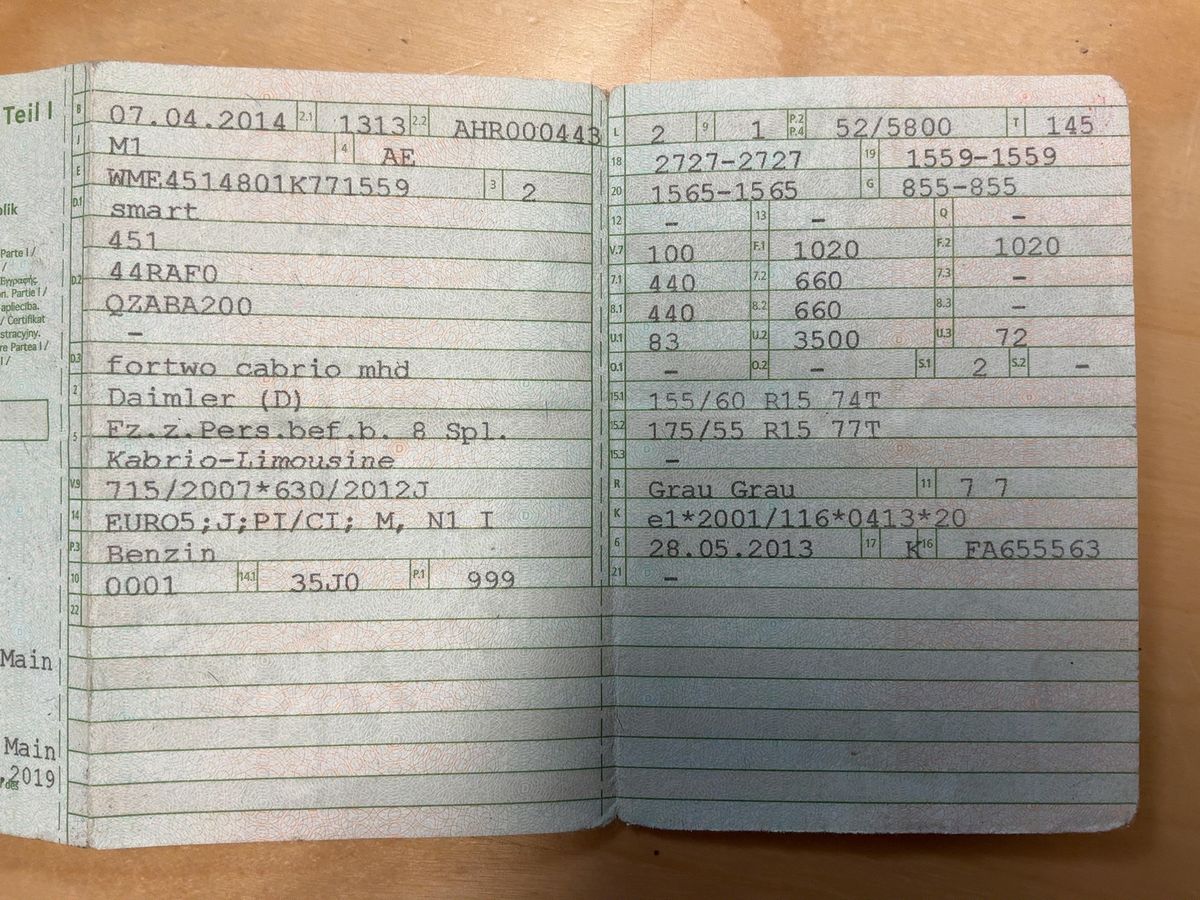 Teil I
olik
Parte I /
/
Εγγραφής.
n. Partie I /
apliecība.
/ Certifikat
stracyjny.
re Partea I /
I /
Main
Main
.2019
des
B 07.04.2014 2.1 1313 2.2 AHR000443
J M1 4 AE
E WME4514801K771559 3 2
D.1 smart
451
D.2 44RAF0
QZABA200
–
D.3 fortwo cabrio mhd
2 Daimler (D)
5 Fz.z.Pers.bef.b. 8 Spl.
Kabrio-Limousine
V.9 715/2007*630/2012J
14 EURO5;J;PI/CI; M, N1 I
P.3 Benzin
10 0001 14.1 35J0 P.1 999
22
L 2 9 1 P.2 P.4 52/5800 T 145
18 2727-2727 19 1559-1559
20 1565-1565 G 855-855
12 – 13 – Q –
V.7 100 F.1 1020 F.2 1020
7.1 440 7.2 660 7.3 –
8.1 440 8.2 660 8.3 –
U.1 83 U.2 3500 U.3 72
O.1 – O.2 – S.1 2 S.2 –
15.1 155/60 R15 74T
15.2 175/55 R15 77T
15.3 –
R Grau Grau 11 7 7
K e1*2001/116*0413*20
6 28.05.2013 17 K 16 FA655563
21 –